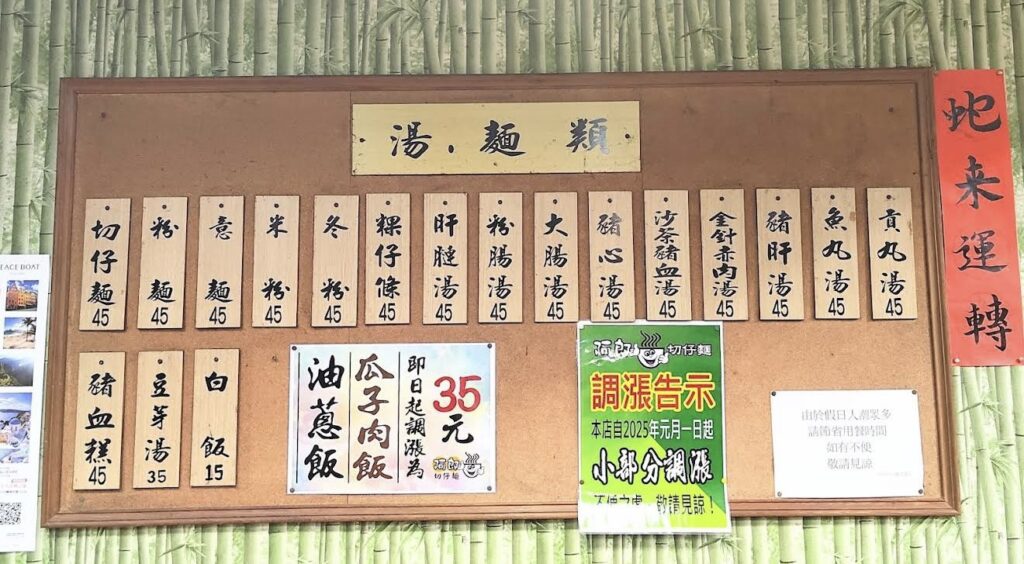 湯.麵類
切仔麵45
粉麵45
意麵45
米粉45
冬粉45
粿仔條45
肝腱湯45
粉腸湯45
大腸湯45
豬心湯45
沙茶豬血湯45
金針赤肉湯45
豬肝湯45
魚丸湯45
貢丸湯45
豬血糕45
豆芽湯35
白飯15
油蔥飯
瓜子肉飯
即日起調漲為
35元
阿郎
切仔麵
阿郎切仔麵
調漲告示
本店自2025年元月一日起
小部分調漲
不便之處,敬請見諒!
由於假日人潮眾多
請節省用餐時間
如有不便
敬請見諒
蛇来運轉
PEACE BOAT